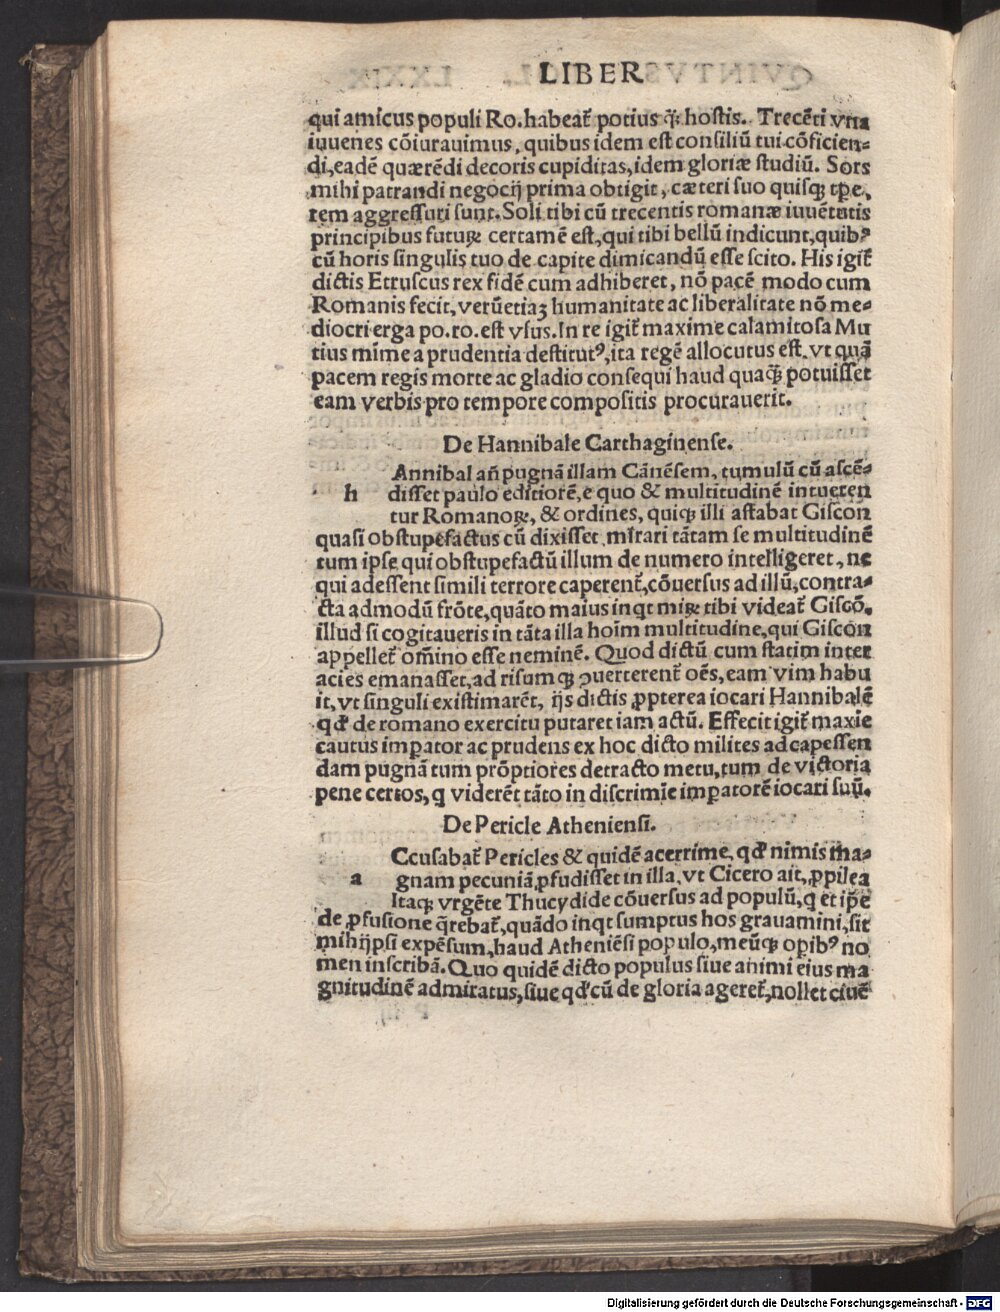 LIBER
qui amicus populi Ro. habeat᷑ potius q̃ꝫ hostis. Trecẽti vna
iuuenes cõiurauimus, quibus idem est consiliũ tui cõficien⸗
di, eadẽ quærẽdi decoris cupiditas, idem gloriæ studiũ. Sors
mihi patrandi negocij prima obtigit, cæteri suo quisqꝫ tp̃e,
rem aggressuri sunt. Soli tibi cũ trecentis romanæ iuuẽtutis
principibus futuꝝ certamẽ est, qui tibi bellũ indicunt, quibꝰ
cũ horis singulis tuo de capite dimicandũ esse scito. His igit᷑
dictis Etruscus rex fidẽ cum adhiberet, nõ pacẽ modo cum
Romanis fecit, verũetiaꝫ humanitate ac liberalitate nõ me⸗
diocri erga po. ro. est vsus. In re igit᷑ maxime calamitosa Mu
tius mĩme a prudentia destitutꝰ, ita regẽ allocutus est, vt quã
pacem regis morte ac gladio consequi haud quaq̃ꝫ potuisset
eam verbis pro tempore compositis procurauerit.
De Hannibale Carthaginense.
Annibal añ pugnã illam Cãnẽsem, tumulũ cũ ascẽ⸗
h disset paulo editiorẽ, e quo & multitudinẽ intueren
tur Romanoꝝ, & ordines, quiqꝫ illi astabat Giscon
quasi obstupefactus cũ dixisset, mĩrari tãtam se multitudinẽ
tum ipse qui obstupefactũ illum de numero intelligeret, ne
qui adessent simili terrore caperent᷑, cõuersus ad illũ, contra⸗
cta admodũ frõte, quãto maius inqt miꝝ tibi videat᷑ Giscõ,
illud si cogitaueris in tãta illa hoĩm multitudine, qui Giscon
appellet᷑ om̃ino esse neminẽ. Quod dictũ cum statim inter
acies emanasset, ad risumqꝫ ꝯuerterent᷑ oẽs, eam vim habu
it, vt singuli existimarẽt, ijs dictis ꝓpterea iocari Hannibalẽ
qđ de romano exercitu putaret iam actũ. Effecit igit᷑ maxĩe
cautus imꝑator ac prudens ex hoc dicto milites ad capessen
dam pugnã tum prõptiores detracto metu, tum de victoria
pene certos, q̃ viderẽt tãto in discrimĩe imꝑatorẽ iocari suũ.
De Pericle Atheniensi.
Ccusabat᷑ Pericles & quidẽ acerrime, qđ nimis ma⸗
a gnam pecuniã ꝓfudisset in illa, vt Cicero ait, ꝓpilea
Itaqꝫ vrgẽte Thucydide cõuersus ad populũ, q̃ et ip̃e
de ꝓfusione q̃rebat᷑, quãdo inqt sumptus hos grauamini, sit
mihijpsi expẽsum, haud Atheniẽsi populo, meũqꝫ opibꝰ no
men inscribã. Quo quidẽ dicto populus siue animi eius ma
gnitudinẽ admiratus, siue qđ cũ de gloria ageret᷑, nollet ciuẽ
Digitalisierung gefördert durch die Deutsche Forschungsgemeinschaft - DFG